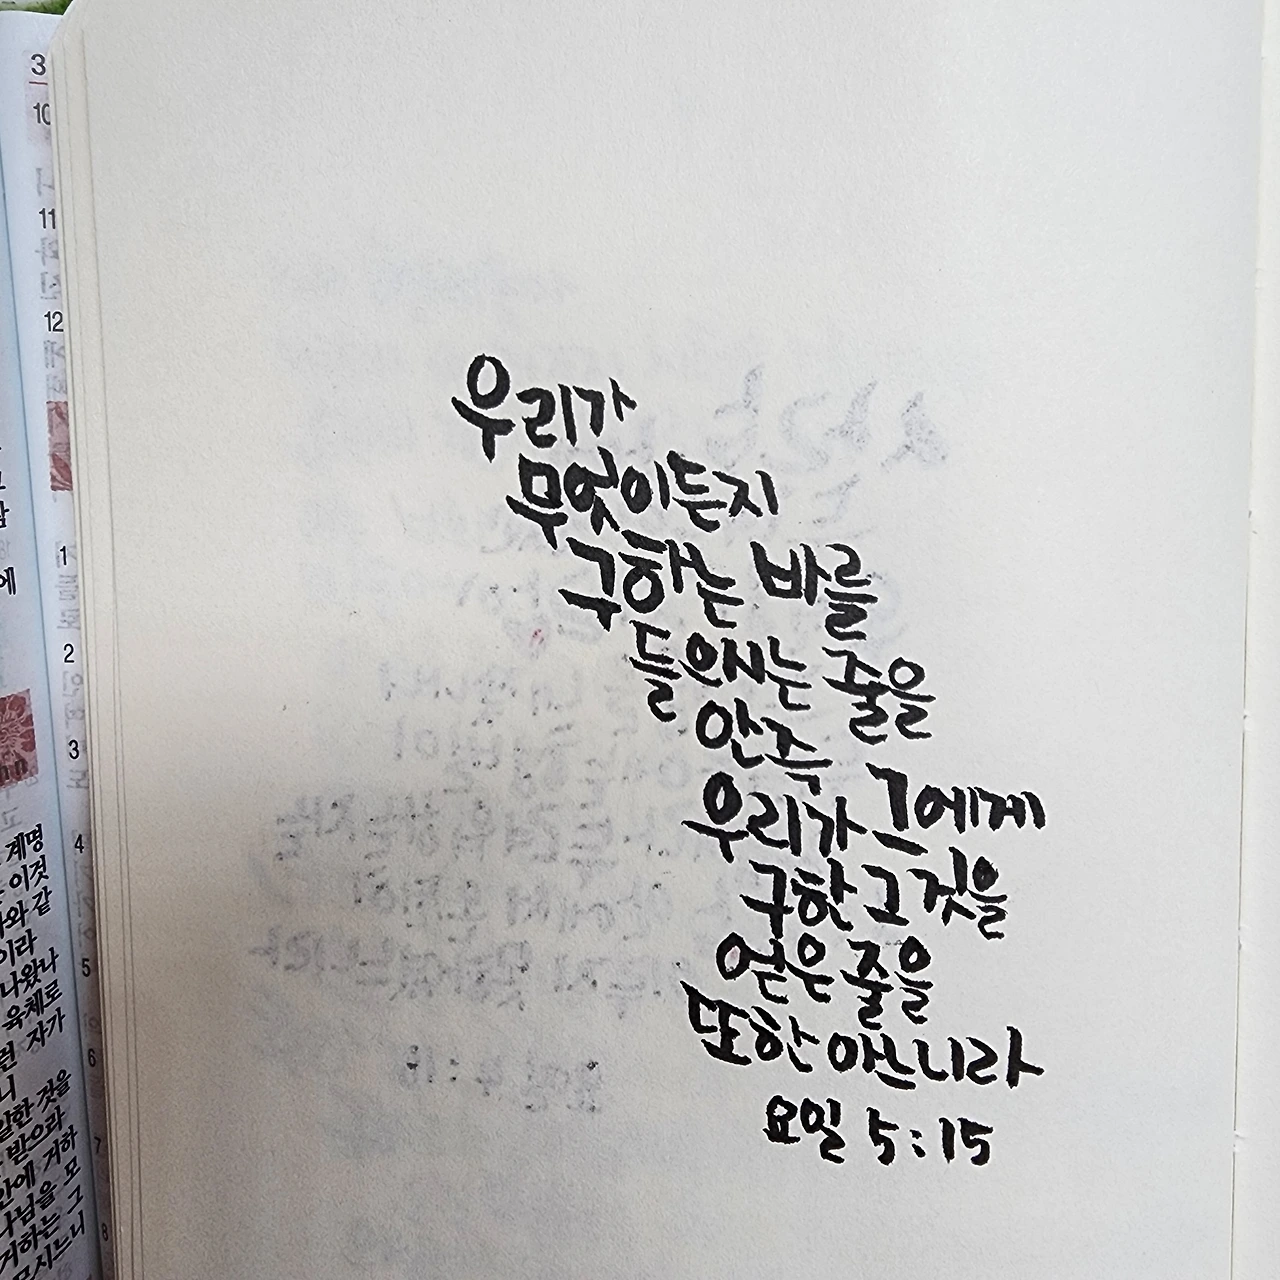 우리가
무엇이든지
구하는 바를
들으시는 줄을
안즉
우리가 그에게
구한 그것을
얻은 줄을
또한 아느니라
요일 5:15
3
10
11
12
1
2
3
4
5
6
7
8
에
계명
이것
와 같
이라
나왔나
육체로
자가
니
말한 것을
받으라
안에 거하
나님을 모
거하는 그
모시느니